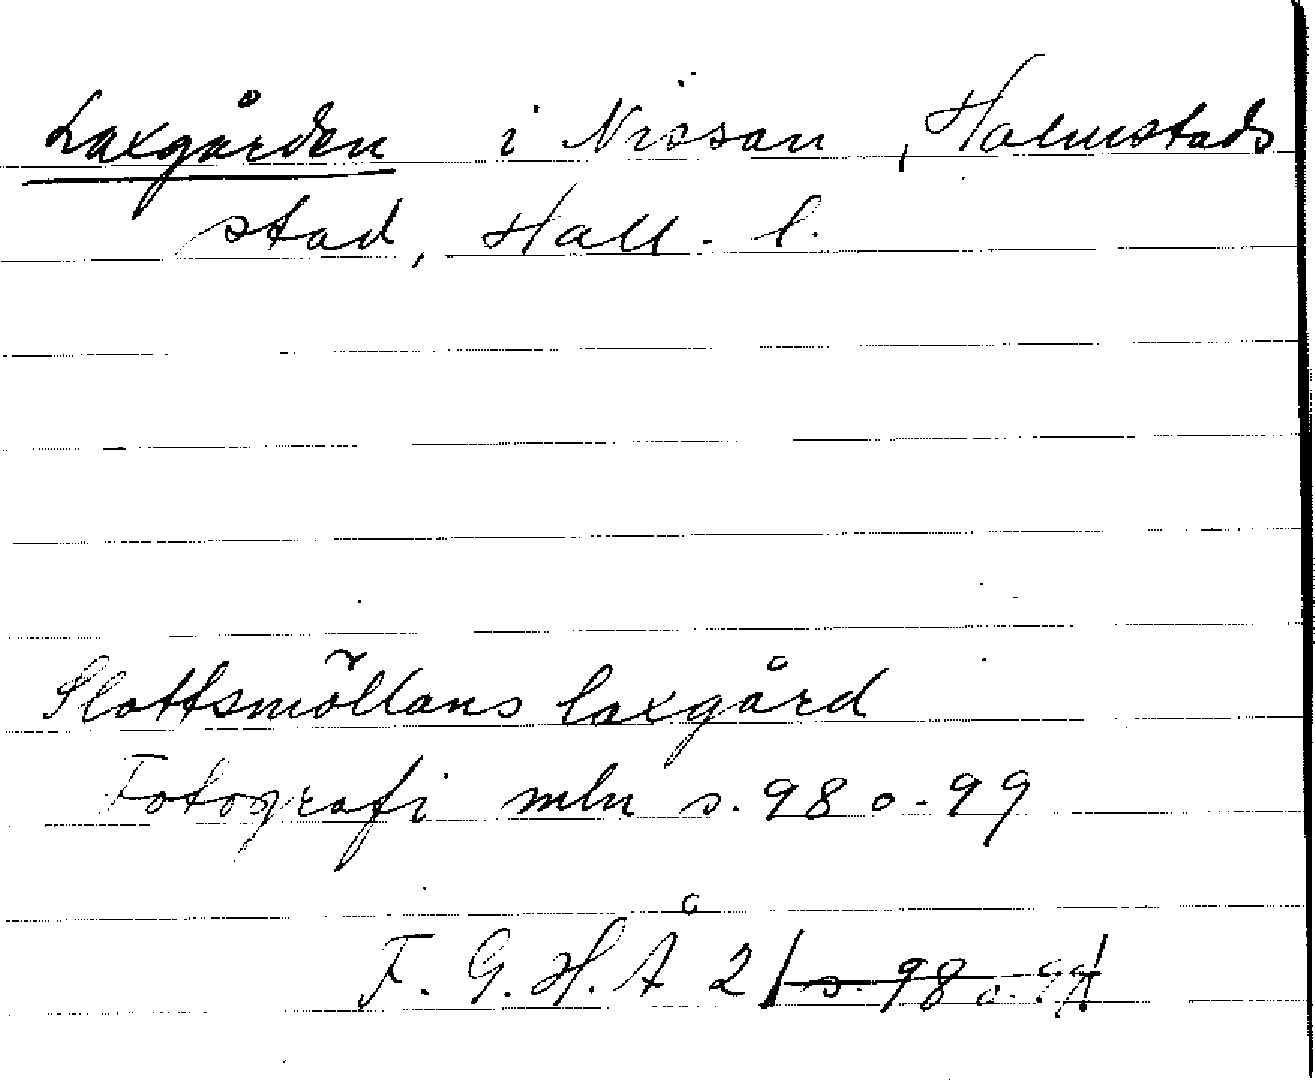 Laxgården i Nissan, Halmstads
stad, Hall. l.
Slottsmöllans laxgård
Fotografi mln s. 98 o. 99
F. G. H. Å 2 s. 98 o. 99